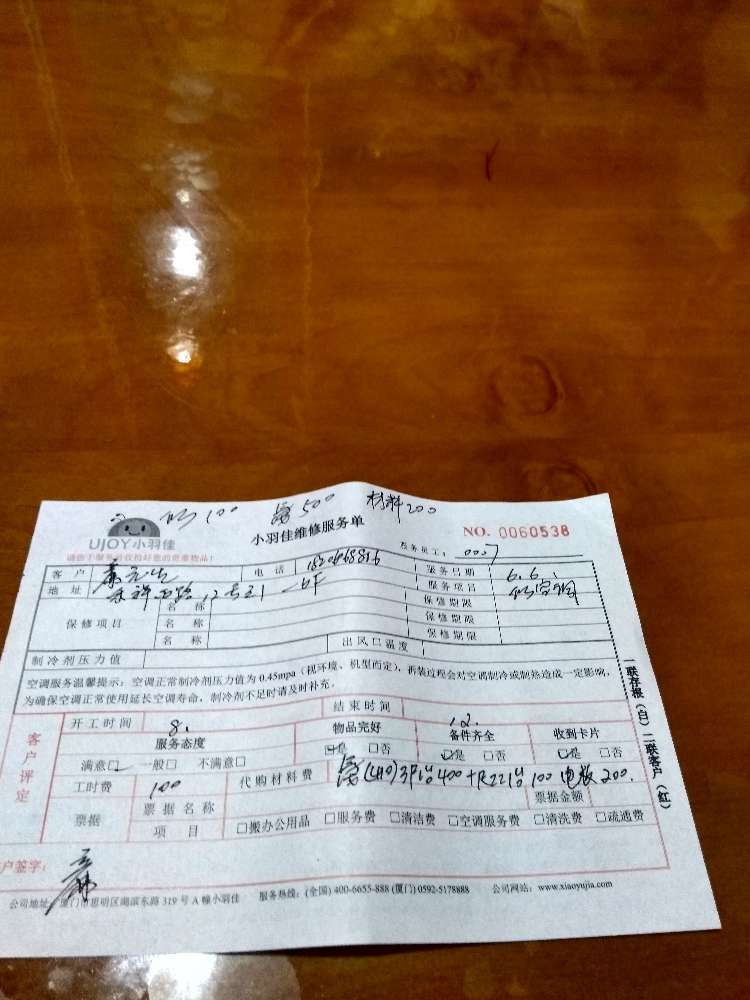 修100 氟500 材料200
UJOY小羽佳
小羽佳维修服务单
NO. 0060538
请您于服务前收拾好您的贵重物品!
服务员工: 0007
客户 萧先生 电话 服务日期 6.6.
地址 禾祥西路12号 服务项目 修空调
保修项目
名称 保修期限
名称 保修期限
名称 保修期限
制冷剂压力值 出风口温度
空调服务温馨提示: 空调正常制冷剂压力值为0.45mpa(视环境、机型而定), 拆装过程会对空调制冷或制热造成一定影响,
为确保空调正常使用延长空调寿命, 制冷剂不足时请及时补充.
客户评定
开工时间 8. 结束时间 12.
服务态度 物品完好 备件齐全 收到卡片
满意□ 一般□ 不满意□ □是 □否 □是 □否 □是 □否
工时费 100 代购材料费 氟(410)3P 400+R22 100 电板200.
票据 票据名称 票据金额
项目 □搬办公用品 □服务费 □清洁费 □空调服务费 □清洗费 □疏通费
户签字:
公司地址: 厦门市思明区湖滨东路319号A幢小羽佳 服务热线: (全国) 400-6655-888 (厦门) 0592-5178888 公司网站: www.xiaoyujia.com
一联存根(白) 二联客户(红)